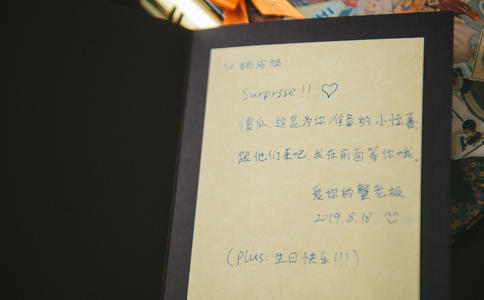 To
Surprise!! ♡
傻瓜,这是为你准备的小惊喜,
跟他们来吧,我在前面等你哦。
爱你的蟹老板
2019.8.18
(Plus:生日快乐!!!)